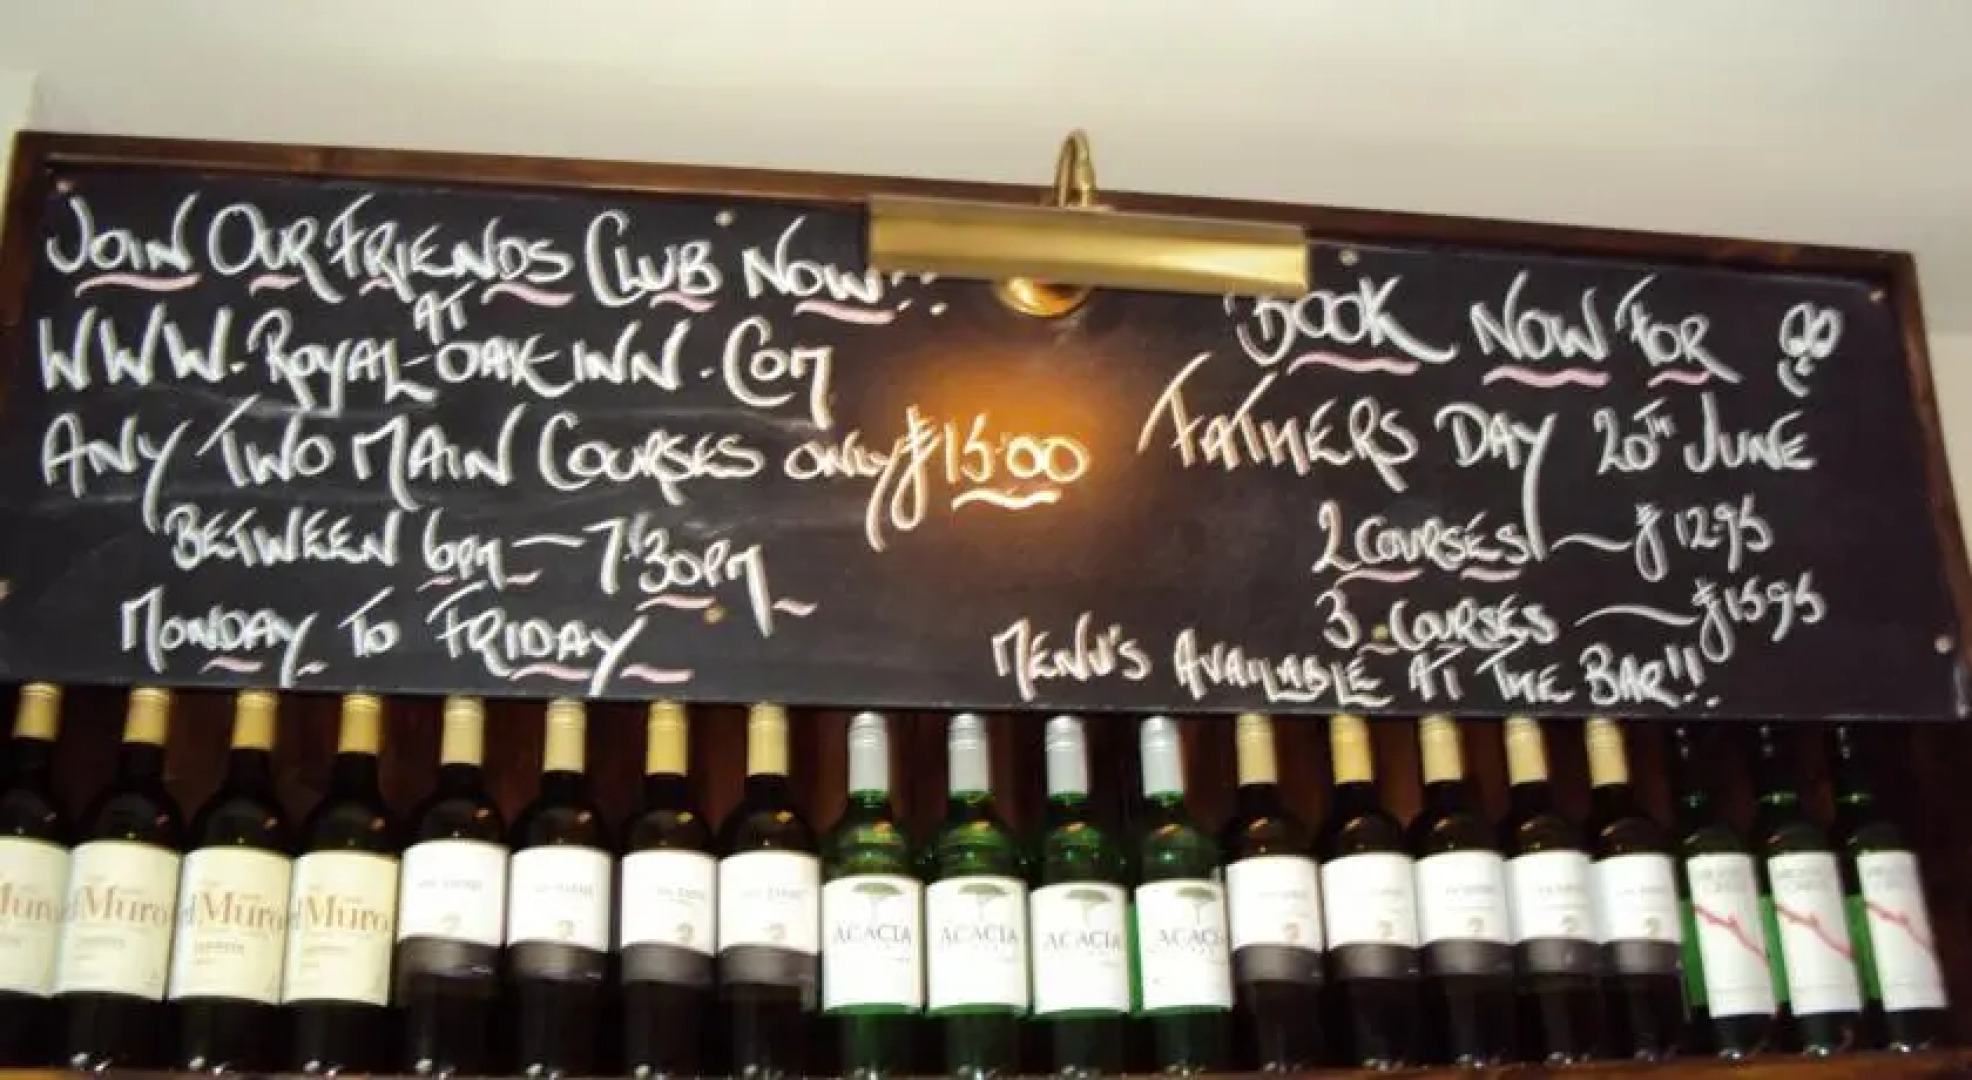 JOIN OUR FRIENDS CLUB NOW!!
AT
WWW.ROYAL-OAKINN.COM
ANY TWO MAIN COURSES ONLY £15.00
BETWEEN 6PM - 7.30PM
MONDAY TO FRIDAY
BOOK NOW FOR
FATHERS DAY 20TH JUNE
2 COURSES - £12.95
3 COURSES - £15.95
MENU'S AVAILABLE AT THE BAR!!
Muro
el Muro
el Muro
el Muro
ACACIA
ACACIA
ACACIA
ACACIA